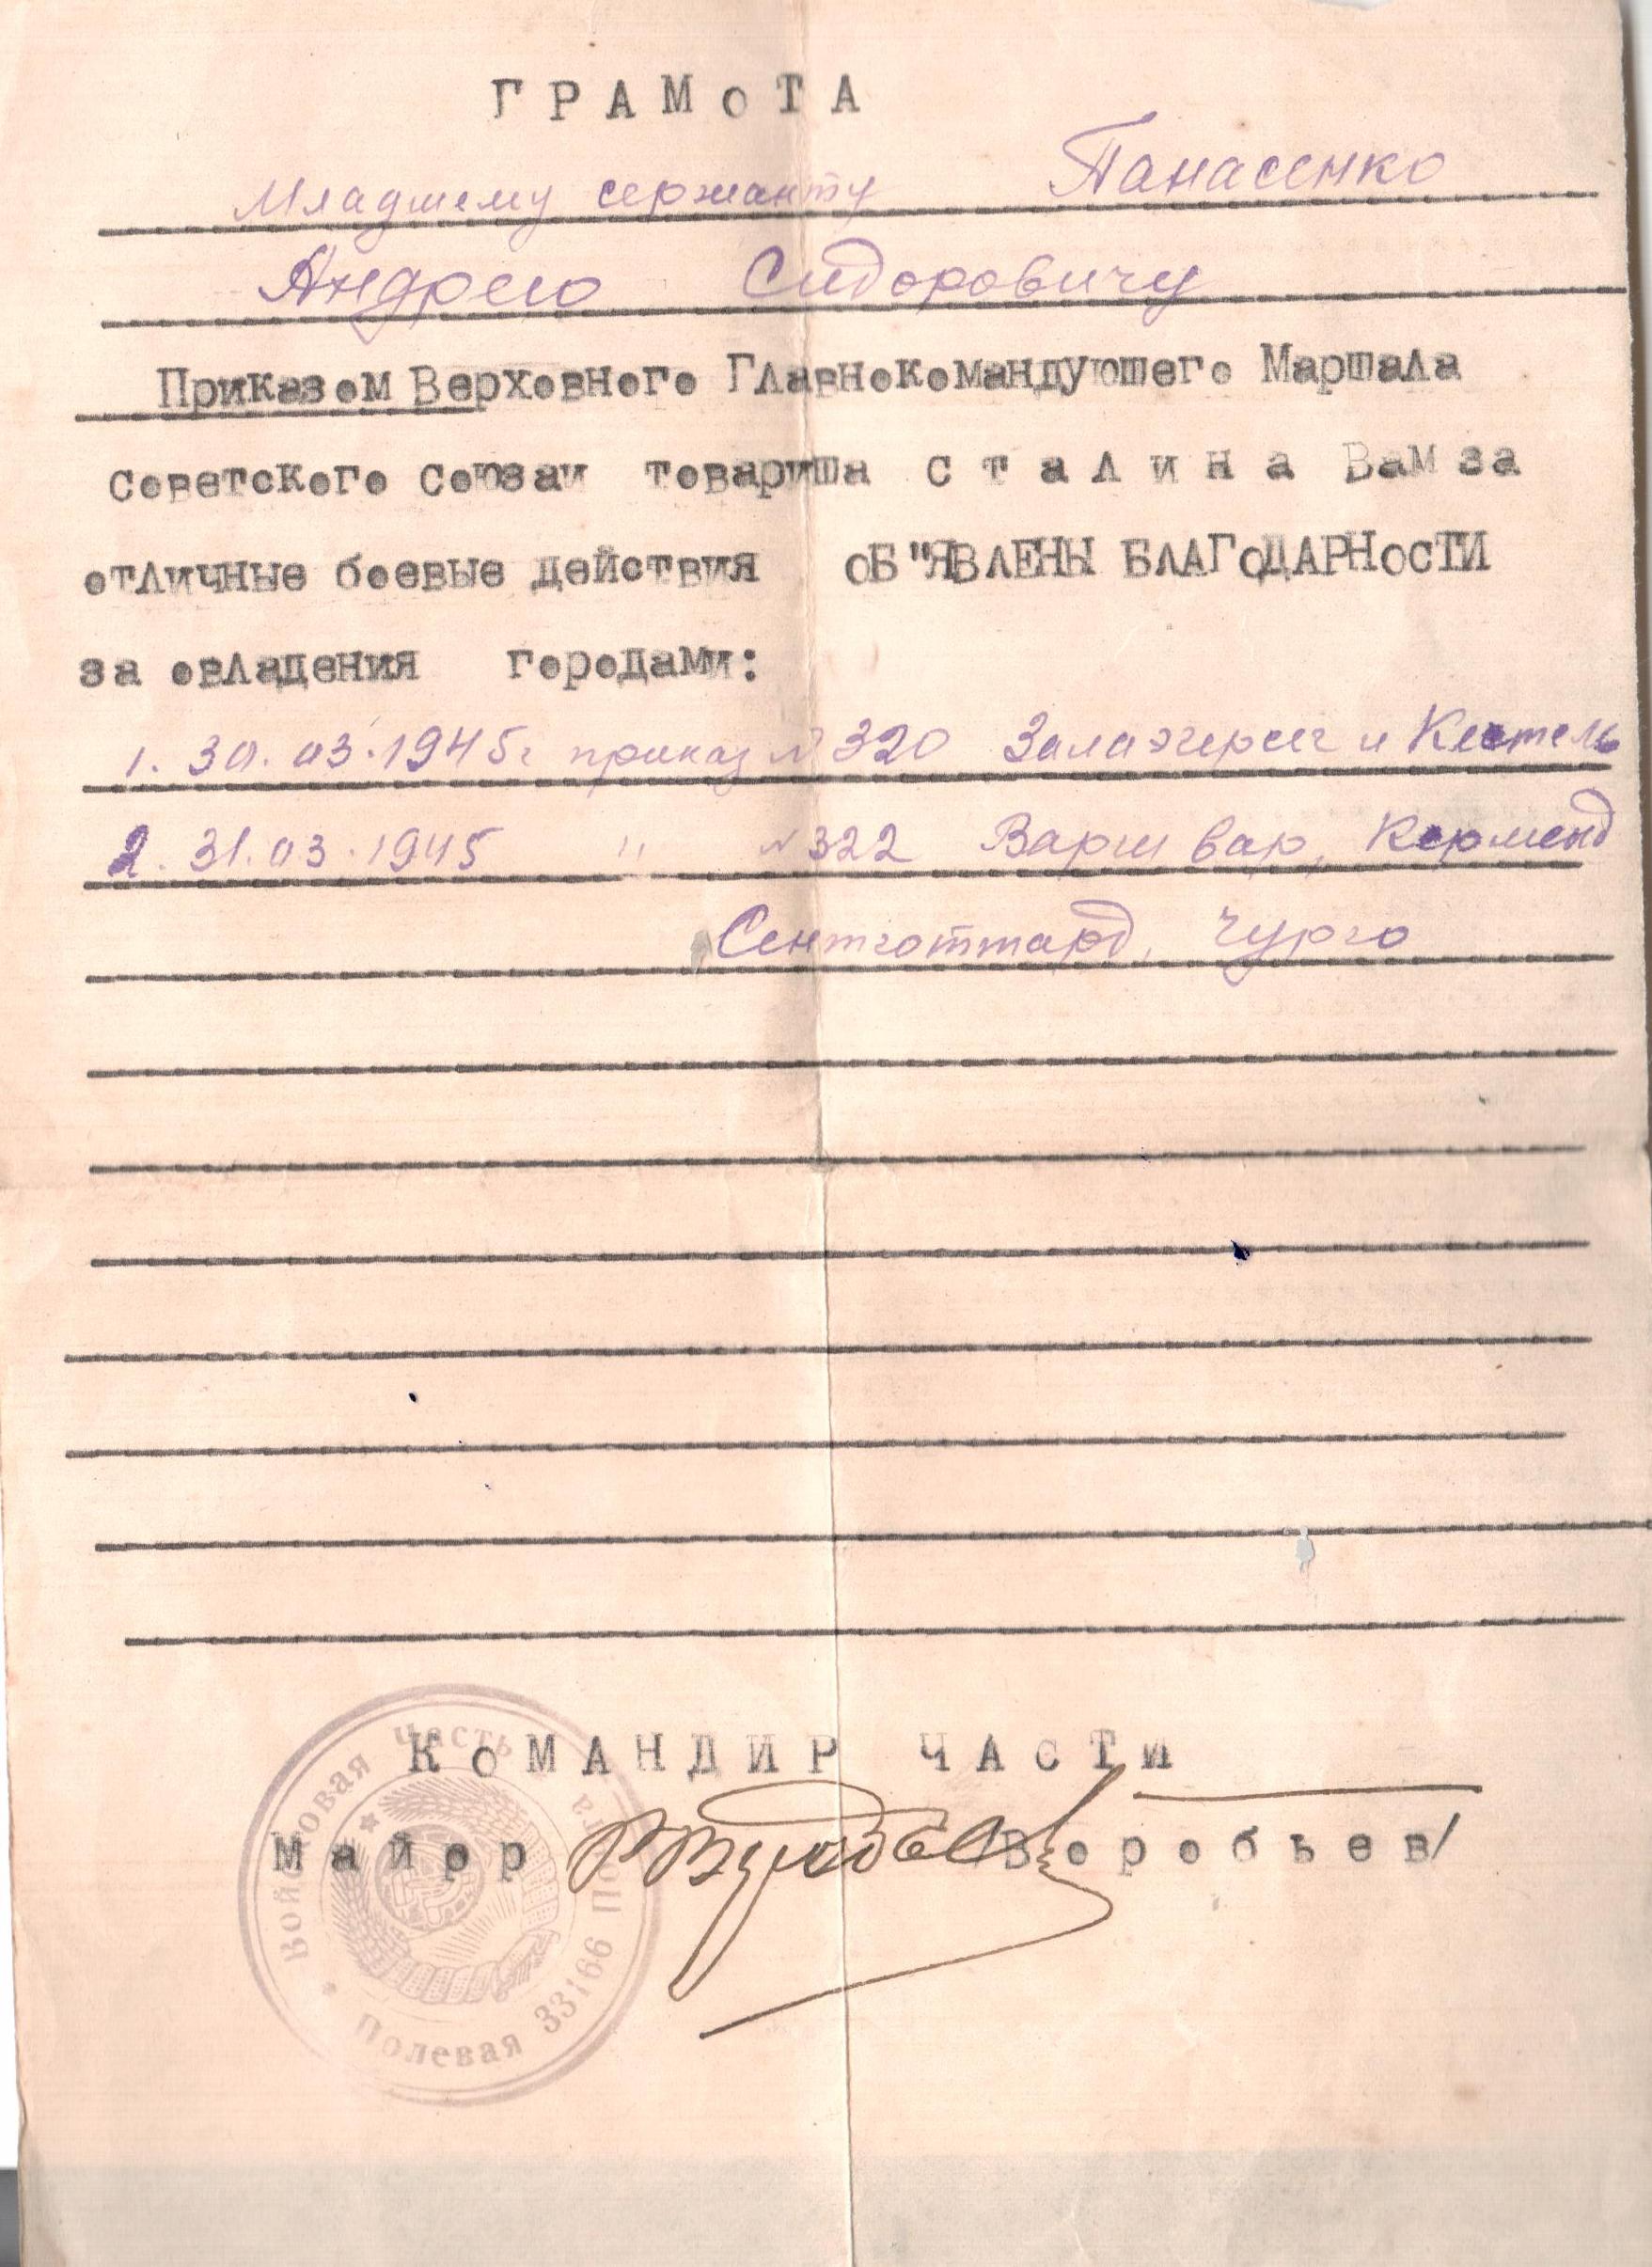 ГРАМОТА
Младшему сержанту Панасенко
Андрею Сидоровичу
Приказом Верховного Главнокомандуюшего Маршала
Советского Союзаи товариша Сталина Вам за
отличные боевые действия ОБ"ЯВЛЕНЫ БЛАГОДАРНОСТИ
за овладения городами:
1. 30.03.1945г приказ № 320 Залаэгерсег и Кестель
2. 31.03.1945 " № 322 Вашвар, Керменд
Сентготтард, Чурго
КОМАНДИР ЧАСТИ
Майор /Воробьев/
Войсковая часть Полевая Почта 33166